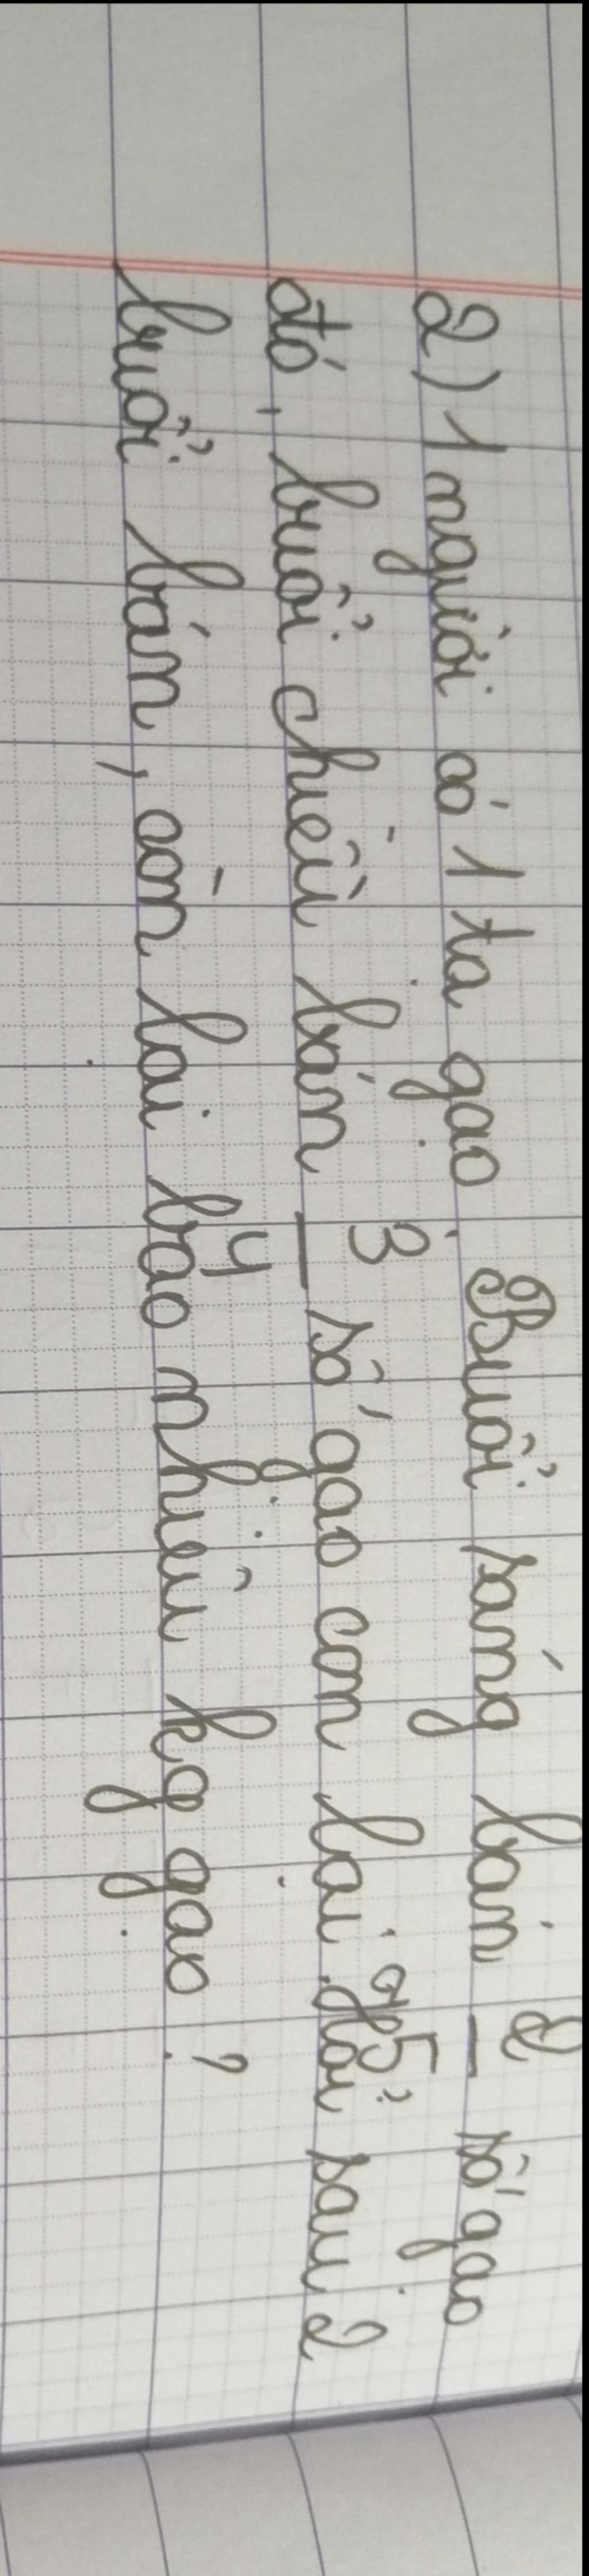 2) 1 người có 1 tạ gạo. Buổi sáng bán 2/5 số gạo
đó, buổi chiều bán 3/4 số gạo còn lại. Hỏi sau 2
buổi bán, còn lại bao nhiêu kg gạo ?